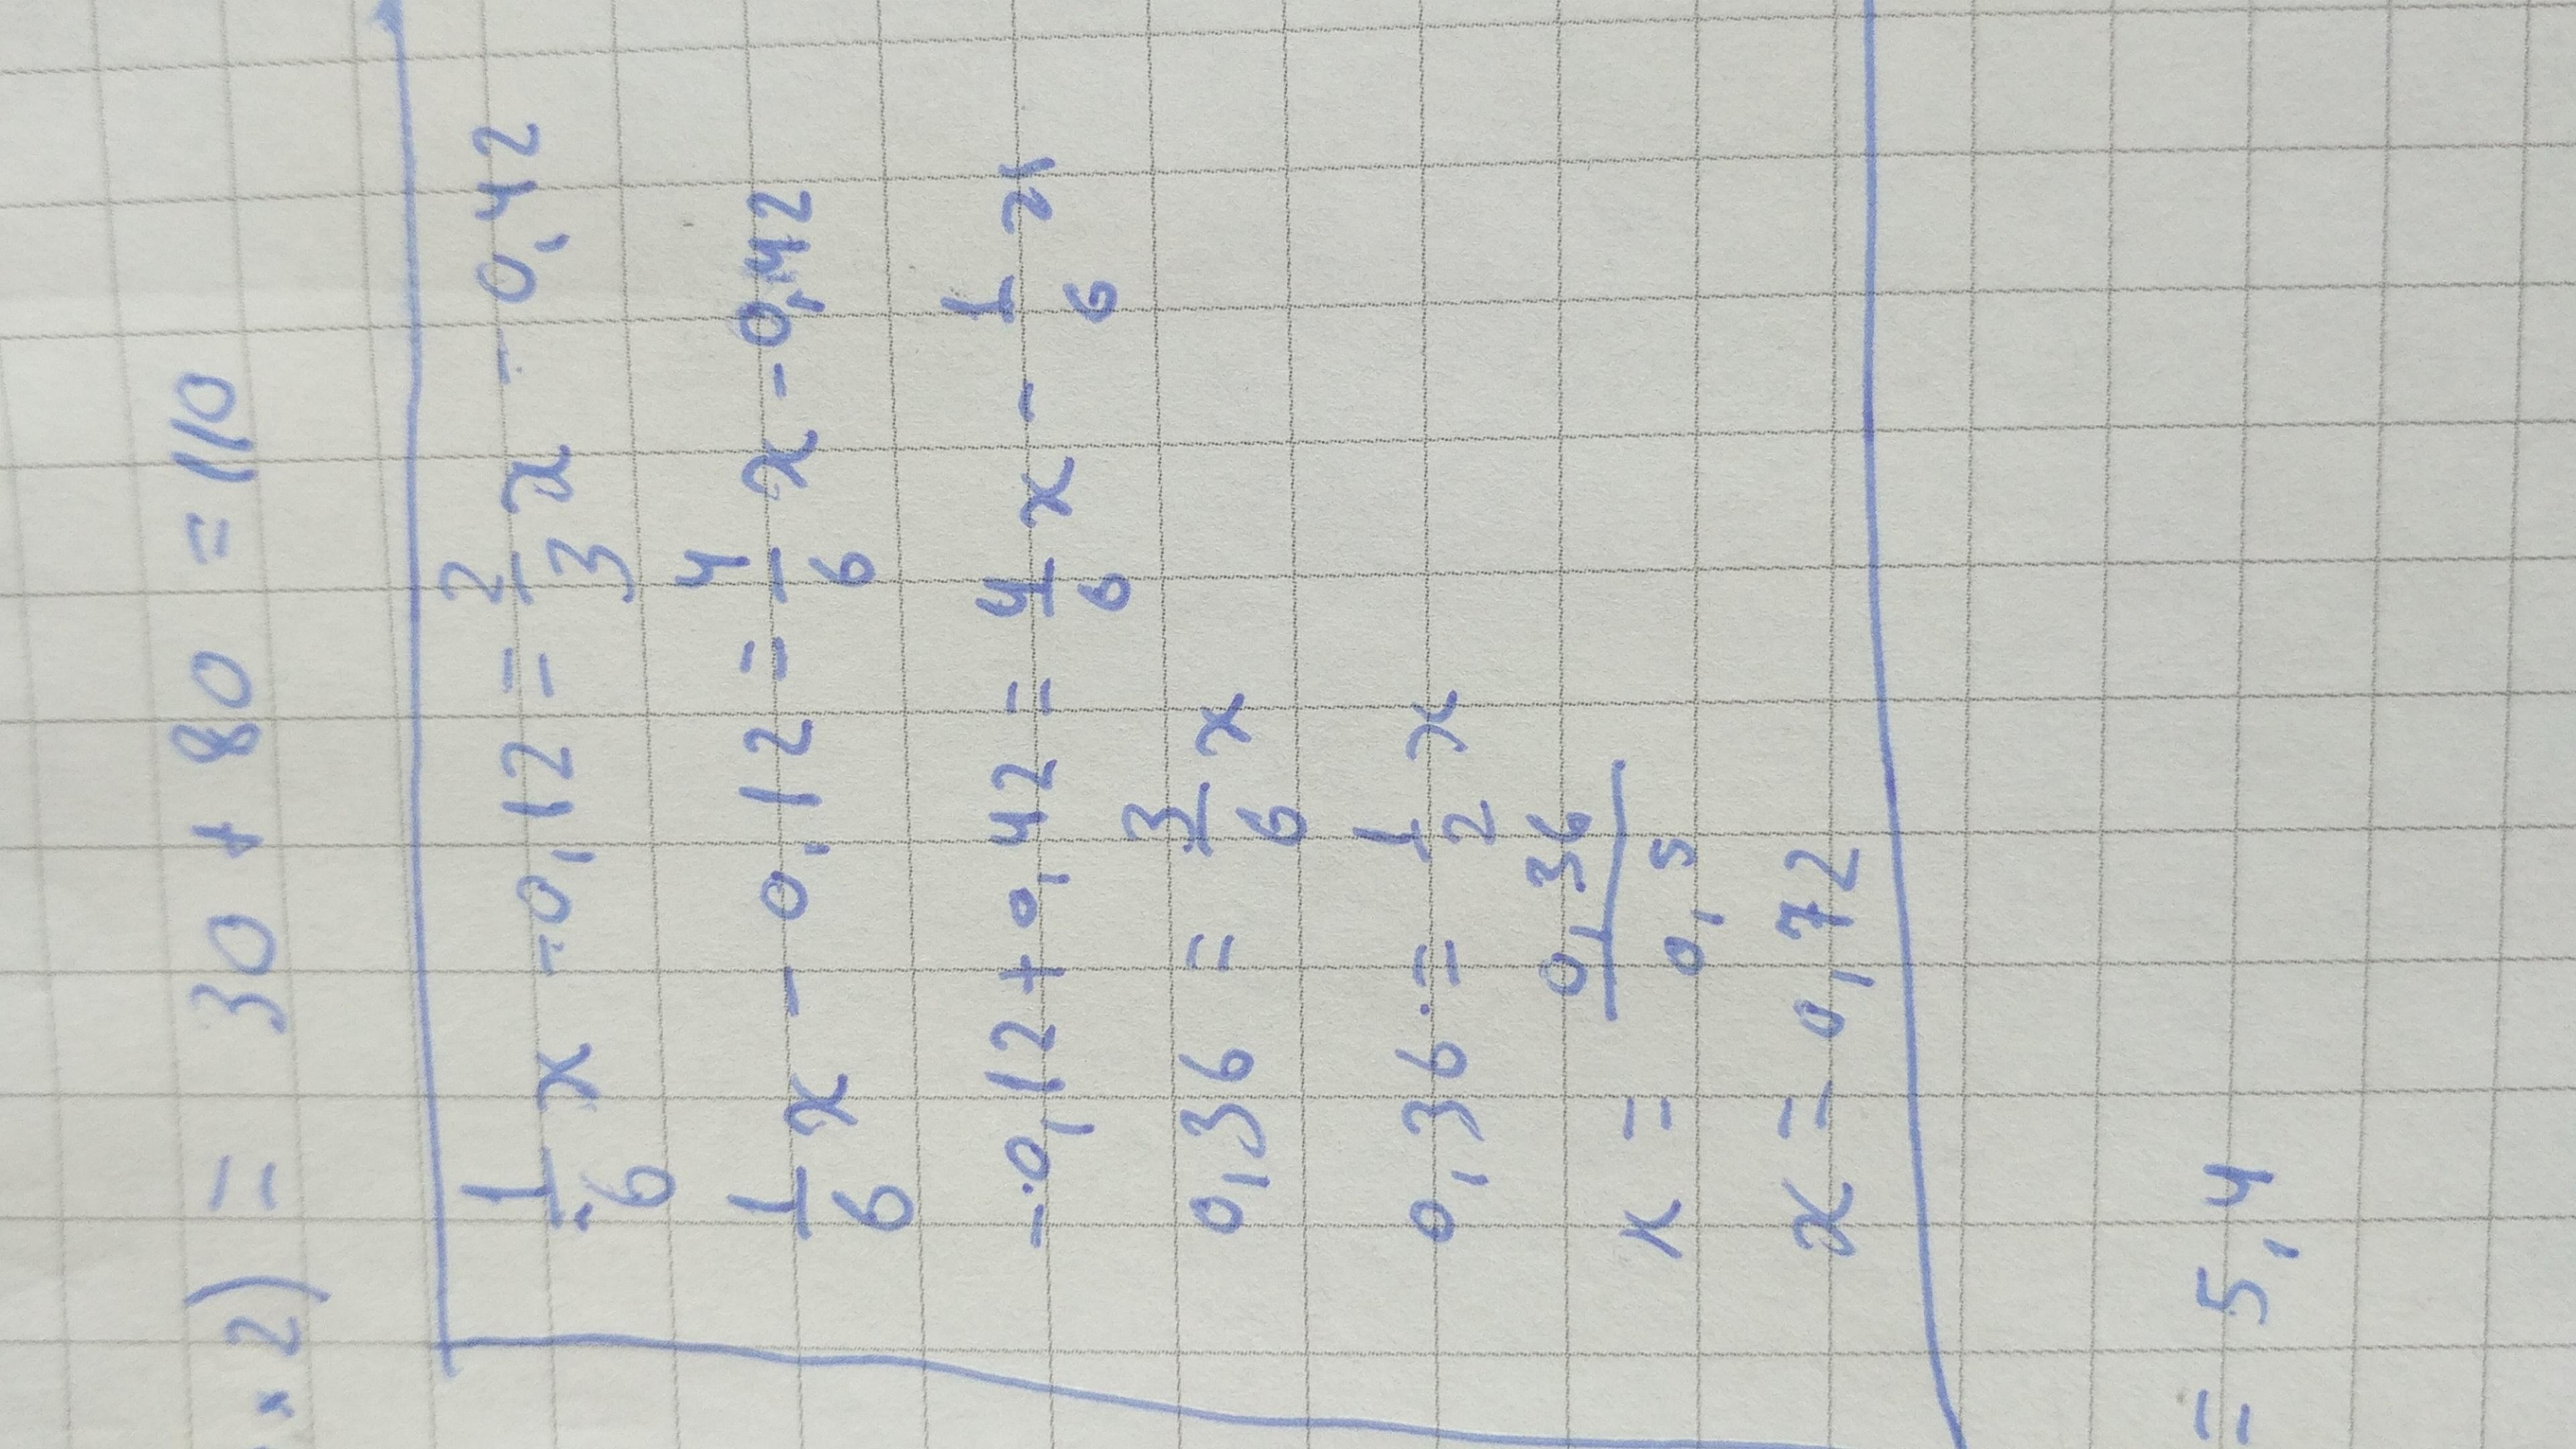 . 2) = 30 + 80 = 110
1/6 x - 0,12 = 2/3 x - 0,42
1/6 x - 0,12 = 4/6 x - 0,42
-0,12 + 0,42 = 4/6 x - 1/6 x
0,36 = 3/6 x
0,36 = 1/2 x
x = 0,36/0,5
x = 0,72
= 5,4